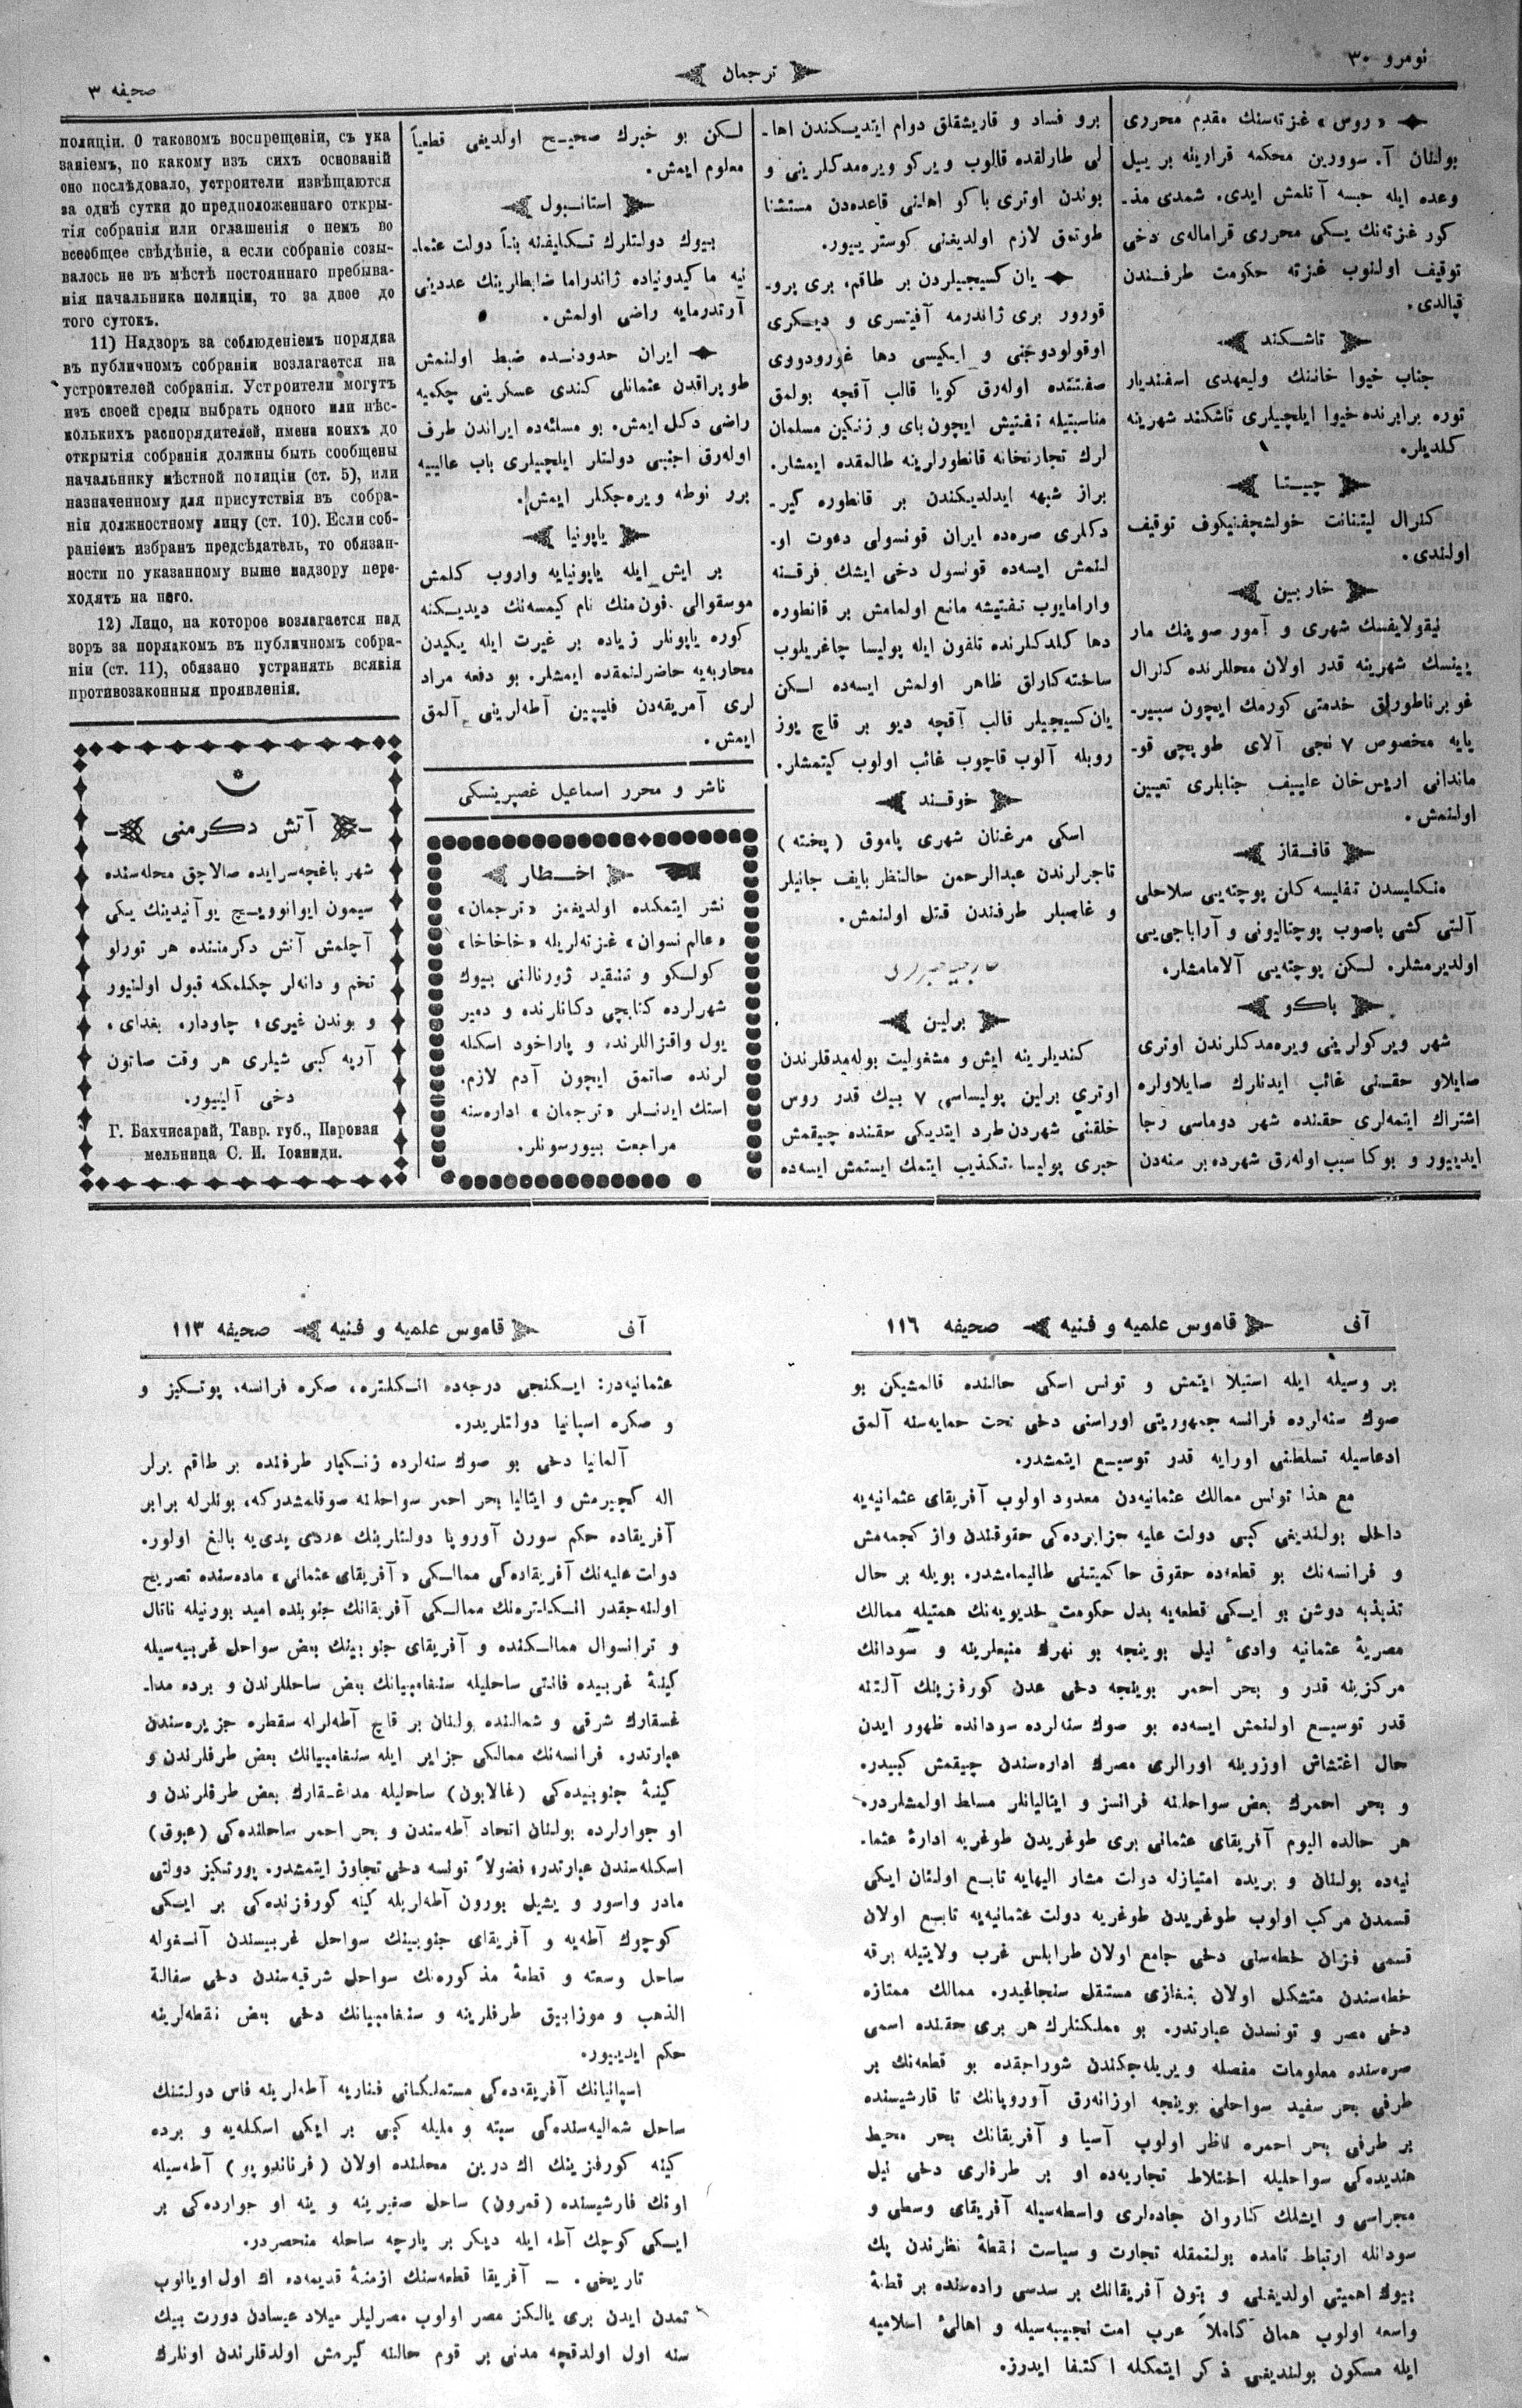 نومرو ٣٠
ترجمان
صحيفه ٣
« روس » غزته‌سنك مقدم محرری
بولنان آ. سوورين محكمه قرارينه بر ييل
وعده ايله حبسه آتلمش ايدی. شمدی مذ-
كور غزته‌نك يـكی محرری قراماله‌ی دخی
توقيف اولنوب غزته حكومت طرفـندن
قپالدی.
تاشـكند
جناب خيوا خاننك وليعهدی اسفنديار
توره برابرنده خيوا ايلچيلری تاشكند شهرينه
كلديلر.
چيـتـا
كنرال ليتنانت خولشچفنيكوف توقيف
اولندی.
خاربين
نيقولايفسك شهری و آمور صوينك مار
يينسك شهرينه قدر اولان محللرنده كنرال
غوبرناطورلق خدمتی كورمك ايچون سيبير-
يايه مخصوص ٧ نجی آلای طوپچی قو-
ماندانی اريس‌خان علييف جنابلری تعيين
اولنمش.
قافـقاز
منكليسدن تفليسه كلن پوچته‌يی سلاحلی
آلتی كشی باصوب پوچتاليونی و آراباجی‌يی
اولديرمشلر. لـكن پوچته‌يی آلامامشلر.
باكـو
شهر ويركولرينی ويره‌مدكلرندن اوتری
صايلاو حقـنی غائب ايدنلرك صايلاولره
اشتراك ايتمه‌لری حقنده شهر دوماسی رجا
ايديیور و بوكا سبب اوله‌رق شهرده بر سنه‌دن
برو فساد و قاريشقلق دوام ايتديـكندن اها-
لی طارلقده قالوب ويركو ويره‌مدكلرينی و
بوندن اوتری باكو اهلنی قاعده‌دن مستثنا
طوتمق لازم اولديغنی كوستريیور.
يان كسيجيلردن بر طاقم، بری پرو-
قورور بری ژاندرمه آفيتسری و ديـكری
اوقولودوچنی و ايكيسی دها غورودووی
صفتنده اوله‌رق كويا قالب آقچه بولمق
مناسبتيله تفتيش ايچون بای و زنكين مسلمان
لرك تجارتخانه قانطورلرينه طالمقده ايمشلر.
براز شبهه ايدلديكندن بر قانطوره كير-
دكلری صره‌ده ايران قونسولی دعوت او-
لنمش ايسه‌ده قونسول دخی ايشك فرقـنه
وارامايوب تفتيشه مانع اولمامش بر قانطوره
دها كلدكلرنده تلفون ايله پوليسا چاغريلوب
ساخته‌كارلق ظاهر اولمش ايسه‌ده لـكن
يان‌كسيجيلر قالب آقچه ديو بر قاچ يوز
روبله آلوب قاچوب غائب اولوب كيتمشلر.
خوقـند
اسكی مرغنان شهری پاموق ( پخته )
تاجرلرندن عبدالرحمن حالنظر بايف جانيلر
و غاصبلر طرفندن قتل اولنمش.
خارجيه خبرلری
برلين
كنديلرينه ايش و مشغوليت بوله‌مدقلرندن
اوتری برلين پوليساسی ٧ بيك قدر روس
خلقنی شهردن طرد ايتديكی حقنده چيقمش
خبری پوليسا تكذيب ايتمك ايستمش ايسه‌ده
لـكن بو خبرك صحيـح اولديغی قطعياً
معلوم ايمش.
استانـبول
بيوك دولتلرك تـكليفـنه بنأ دولت عثما-
نيه ماكيدونياده ژاندراما ضابطلرينك عددينی
آرتدرمايه راضی اولمش.
ايران حدودنـده ضبط اولنمش
طوپراقدن عثمانلی كندی عسكرينی چكميه
راضی دكل ايمش. بو مسئله‌ده ايراندن طرف
اوله‌رق اجنبی دولتلر ايلچيلری باب عالييه
برر نوطه ويره‌جكلر ايمش.
ياپونيا
بر ايش ايله ياپونيايه واروب كلمش
موسقوالی فون منك نام كيمسه‌نك ديديـكنه
كوره ياپونلر زياده بر غيرت ايله يكيدن
محاربه‌يه حاضرلنمقده ايمشلر. بو دفعه مراد
لری آمريقه‌دن فليپين آطه‌لرينی آلمق
ايمش.
ناشر و محرر اسماعيل غصپرينسكی
اخـطار
نشر ايتمكده اولديغمز « ترجمان »
« عالم نسوان » غزته‌لريله « خاخاخا »
كولـكو و تنقيد ژورنالنی بيوك
شهرلرده كتابچی دكانلرنده و دمير
يول واقزاللرنده و پاراخود اسكله
لرنده صاتمق ايچون آدم لازم.
استك ايدنـلر « ترجمان » اداره‌سنه
مراجعت بيورسونلر.
полиціи. О таковомъ воспрещеніи, съ ука
заніемъ, по какому изъ сихъ основаній
оно послѣдовало, устроители извѣщаются
за однѣ сутки до предположеннаго откры-
тія собранія или оглашенія о немъ во
всеобщее свѣдѣніе, а если собраніе созы-
валось не въ мѣстѣ постояннаго пребыва-
нія начальника полиціи, то за двое до
того сутокъ.
11) Надзоръ за соблюденіемъ порядка
въ публичномъ собраніи возлагается на
устроителей собранія. Устроители могутъ
изъ своей среды выбрать одного или нѣс-
колькихъ распорядителей, имена коихъ до
открытія собранія должны быть сообщены
начальнику мѣстной полиціи (ст. 5), или
назначенному для присутствія въ собра-
ніи должностному лицу (ст. 10). Если соб-
раніемъ избранъ предсѣдатель, то обязан-
ности по указанному выше надзору пере-
ходятъ на него.
12) Лицо, на которое возлагается над
зоръ за порядкомъ въ публичномъ собра-
ніи (ст. 11), обязано устранять всякія
противозаконныя проявленія.
آتش دكـرمنی
شهر باغچه‌سرايده صالاچق محله‌سنده
سيمون ايوانوويـچ يوآنيدينك يكی
آچلمش آتش دكرمننده هر تورلو
تخم و دانه‌لر چكلمكه قبول اولنيور
و بوندن غيری، چاودار، بغدای،
آرپه كبی شيلری هر وقت صاتون
دخی آلينيور.
Г. Бахчисарай, Тавр. губ., Паровая
мельница С. И. Іоаниди.
آف
قاموس علميه و فنيه
صحيفه ١١٦
بر وسيله ايله استيلا ايتمش و تونس اسكی حالنده قالمشيكن بو
صوك سنه‌لرده فرانسه جمهوريتی اوراسنی دخی تحت حمايه‌سنه آلمق
ادعاسيله تسلطنی اورايه قدر توسيـع ايتمشدر.
مع هذا تونس ممالك عثمانيه‌دن معدود اولوب آفريقای عثمانيه‌يه
داخل بولنديغی كبی دولت عليه جزايرده‌كی حقوقندن واز كجمه‌مش
و فرانسه‌نك بو قطعه‌ده حقوق حاكميتنی طانيمامشدر. بويله بر حال
تذبذبه دوشن بو ايـكی قطعه‌يه بدل حكومت خديويه‌نك همتيله ممالك
مصريۀ عثمانيه وادیٔ نيل بوينجه بو نهرك منبعلرينه و سودانك
مركزينه قدر و بحر احمر بوينجه دخی عدن كورفزينك آلتنه
قدر توسيـع اولنمش ايسه‌ده بو صوك سنه‌لرده سودانده ظهور ايدن
حال اغتشاش اوزرينه اورالری مصرك اداره‌سندن چيقمش كبيدر.
و بحر احمرك بعض سواحلنه فرانسز و ايتاليانلر مسلط اولمشلردر.
هر حالده اليوم آفريقای عثمانی بری طوغريدن طوغريه ادارۀ عثما-
نيه‌ده بولنان و بريده امتيازله دولت مشار اليهايه تابـع اولنان ايكی
قسمدن مركب اولوب طوغريدن طوغريه دولت عثمانيه‌يه تابـع اولان
قسمی فزان خطه‌سنی دخی جامع اولان طرابلس غرب ولايتيله برقه
خطه‌سندن متشكل اولان بنغازی مستقل سنجاغيدر. ممالك ممتازه
دخی مصر و تونسدن عبارتدر. بو مملكتلرك هر بری حقنده اسمی
صره‌سنده معلومات مفصله ويريله‌جكندن شوراجقده بو قطعه‌نك بر
طرفی بحر سفيد سواحلی بوينجه اوزانه‌رق آوروپانك تا قارشيسنده
بر طرفی بحر احمره ناظر اولوب آسيا و آفريقانك بحر محيط
هنديده‌كی سواحليله اختلاط تجاريه‌ده او بر طرفلری دخی نيل
مجراسی و ايشلك كاروان جاده‌لری واسطه‌سيله آفريقای وسطی و
سودانله ارتباط تامده بولنمقله تجارت و سياست نقطۀ نظرندن پك
بيوك اهميتی اولديغنی و بتون آفريقانك بر سدسی راده‌سنده بر قطعۀ
واسعه اولوب همان كاملاً عرب امت نجيبه‌سيله و اهالیٔ اسلاميه
ايله مسكون بولنديغی ذكر ايتمكله اكتفا ايدرز.
آف
قاموس علميه و فنيه
صحيفه ١١٣
عثمانيه‌در: ايـكنجی درجه‌ده انـكلتره، صكره فرانسه، پوتـكيز و
و صكره اسپانيا دولتلريدر.
آلمانيا دخی بو صوك سنه‌لرده زنـكبار طرفنده بر طاقم يرلر
اله كچيرمش و ايتاليا بحر احمر سواحلنه صوقلمشدركه، بونلرله برابر
آفريقاده حكم سورن آوروپا دولتلرينك عددی يدی‌يه بالغ اولور.
دولت عليه‌نك آفريقاده‌كی ممالـكی « آفريقای عثمانی » ماده‌سنده تصريح
اولنه‌جقدر انـكلتره‌نك ممالـكی آفريقانك جنوبنده اميد بورنيله ناتال
و ترانسوال ممالـكنده و آفريقای جنوبينك بعض سواحل غربيه‌سيله
كينۀ غربيده فانتی ساحليله سنغامبيانك بعض ساحللرندن و برده مدا-
غسقارك شرقی و شمالنده بولنان بر قاچ آطه‌لرله سقطره جزيره‌سندن
عبارتدر. فرانسه‌نك ممالكی جزاير ايله سنغامبيانك بعض طرفلرندن و
كينۀ جنوبيده‌كی (غالابون) ساحليله مداغـقارك بعض طرفلرندن و
او جوارلرده بولنان اتحاد آطه‌سندن و بحر احمر ساحلنده‌كی (عبوق)
اسكله‌سندن عبارتدر، فضولاً تونسه دخی تجاوز ايتمشدر. پورتكيز دولتی
مادر واسور و يشيل بورون آطه‌لريله كينه كورفزنده‌كی بر ايـكی
كوچوك آطه‌يه و آفريقای جنوبينك سواحل غربيسندن آنـغوله
ساحل وسعته و قطعۀ مذكوره‌نك سواحل شرقيه‌سندن دخی سفالة
الذهب و موزابيق طرفلرينه و سنغامبيانك دخی بعض نقطه‌لرينه
حكم ايديیور.
اسپانيانك آفريقه‌ده‌كی مستملكاتی قناريه آطه‌لرينه فاس دولتنك
ساحل شماليه‌سنده‌كی سبته و مليله كبی بر ايكی اسكله‌يه و برده
كينه كورفزينك اك درين محلنده اولان ( فرناندوپو ) آطه‌سيله
اونك قارشيسنده (قمرون) ساحل صغيرينه و ينه او جوارده‌كی بر
ايـكی كوچك آطه ايله ديكر بر پارچه ساحله منحصردر.
تاريخی. — آفريقا قطعه‌سنك ازمنۀ قديمه‌ده اك اول اويانوب
تمدن ايدن يری يالكز مصر اولوب مصرليلر ميلاد عيسادن دورت بيك
سنه اول اولدقچه مدنی بر قوم حالنه كيرمش اولدقلرندن اونلرك